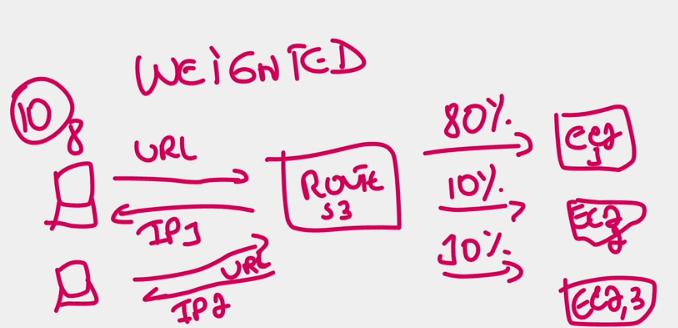 WEIGHTED
10
8
URL
IP1
URL
IP2
ROUTE
53
80%
10%
10%
EC2
1
EC2
2
EC2,3